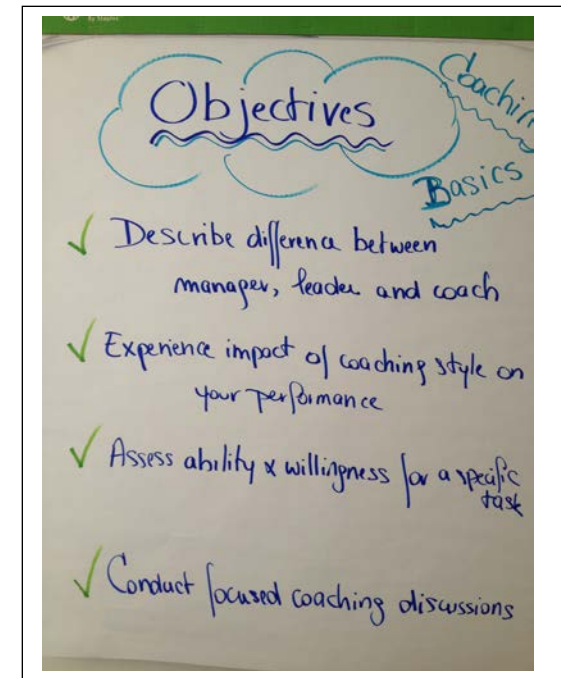 By Staples
Objectives
Coachin
Basics
✓ Describe difference between
manager, leader and coach
✓ Experience impact of coaching style on
your performance
✓ Assess ability & willingness for a specific
task
✓ Conduct focused coaching discussions